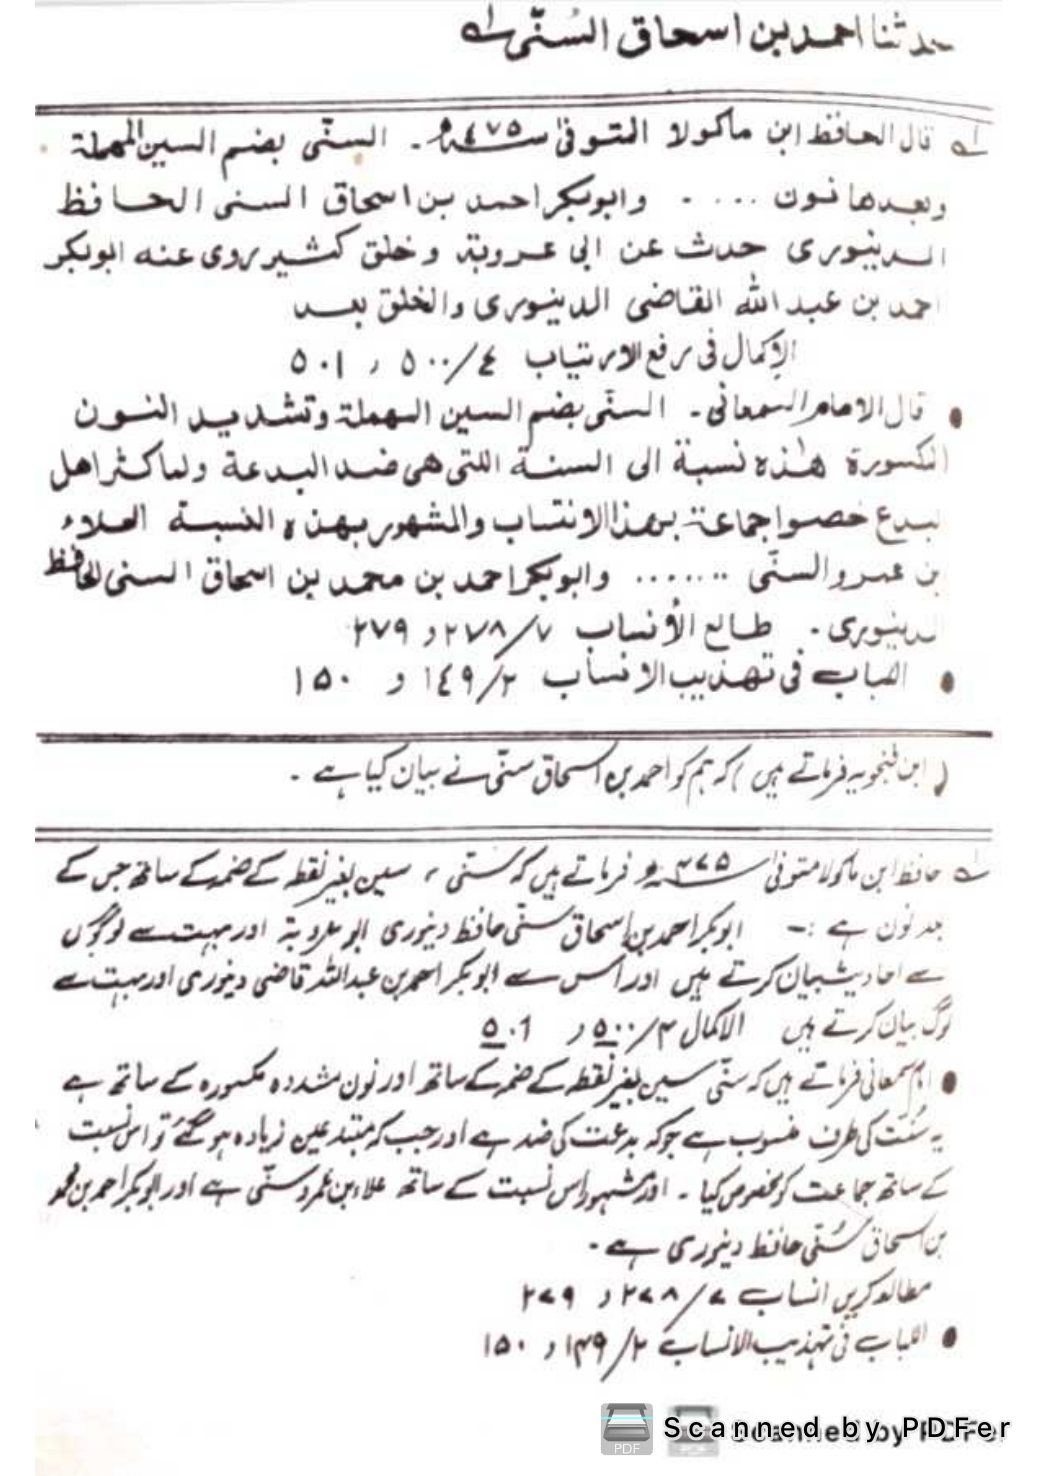 حدثنا احمد بن اسحاق السُنّی لے
لے قال الحافظ ابن ماکولا المتوفی سنہ ٤٧٥ھ ۔ السنّی بضم السین المهملة
وبعدها نون ..... وابوبکر احمد بن اسحاق السنی الحافظ
الدینوری حدث عن ابی عروبة وخلق کثیر روی عنه ابوبکر
احمد بن عبد الله القاضی الدینوری والخلق بعد
الإکمال فی رفع الارتیاب ٤/٥٠٠ ر ٥٠١
● قال الامام السمعانی ۔ السنّی بضم السین المهملة وتشدید النون
المکسورة هٰذه نسبة الی السنة اللتی هی ضد البدعة ولما کثر اهل
لبدع خصوا جماعة بهذا الانتساب والمشهور بهذه النسبة العلاء
بن عمرو السنّی ....... وابوبکر احمد بن محمد بن اسحاق السنی الحافظ
الدینوری ۔ طالع الأنساب ٧/٢٧٨ و ٢٧٩
● اللباب فی تهذیب الانساب ٢/١٤٩ و ١٥٠
( ابن فنجویہ فرماتے ہیں ) کہ ہم کو احمد بن اسحاق سنّی نے بیان کیا ہے ۔
لے حافظ ابن ماکولا متوفی سنہ ۴۷۵ھ فرماتے ہیں کہ سُنّی ، سین بغیر نقطہ کے ضمہ کے ساتھ جس کے
بعد نون ہے :- ابوبکر احمد بن اسحاق سنّی حافظ دینوری ابو عروبة اور بہت سے لوگوں
سے احادیث بیان کرتے ہیں اور اس سے ابوبکر احمد بن عبداللہ قاضی دینوری اور بہت سے
لوگ بیان کرتے ہیں الاکمال ۴/۵۰۰ ر ۵۰۱
● امام سمعانی فرماتے ہیں کہ سنّی سین بغیر نقطہ کے ضمہ کے ساتھ اور نون مشددہ مکسورہ کے ساتھ ہے
یہ سُنّت کی طرف منسوب ہے جو کہ بدعت کی ضد ہے اور جب کہ مبتدعین زیادہ ہو گئے تو اس نسبت
کے ساتھ جماعت کو مخصوص کیا ۔ اور مشہور اس نسبت کے ساتھ علاء بن عمرو سنّی ہے اور ابوبکر احمد بن محمد
بن اسحاق سُنّی حافظ دینوری ہے ۔
مطالعہ کریں انساب ۷/۲۷۸ و ۲۷۹
● اللباب فی تہذیب الانساب ۲/۱۴۹ و ۱۵۰
Scanned by PDFer